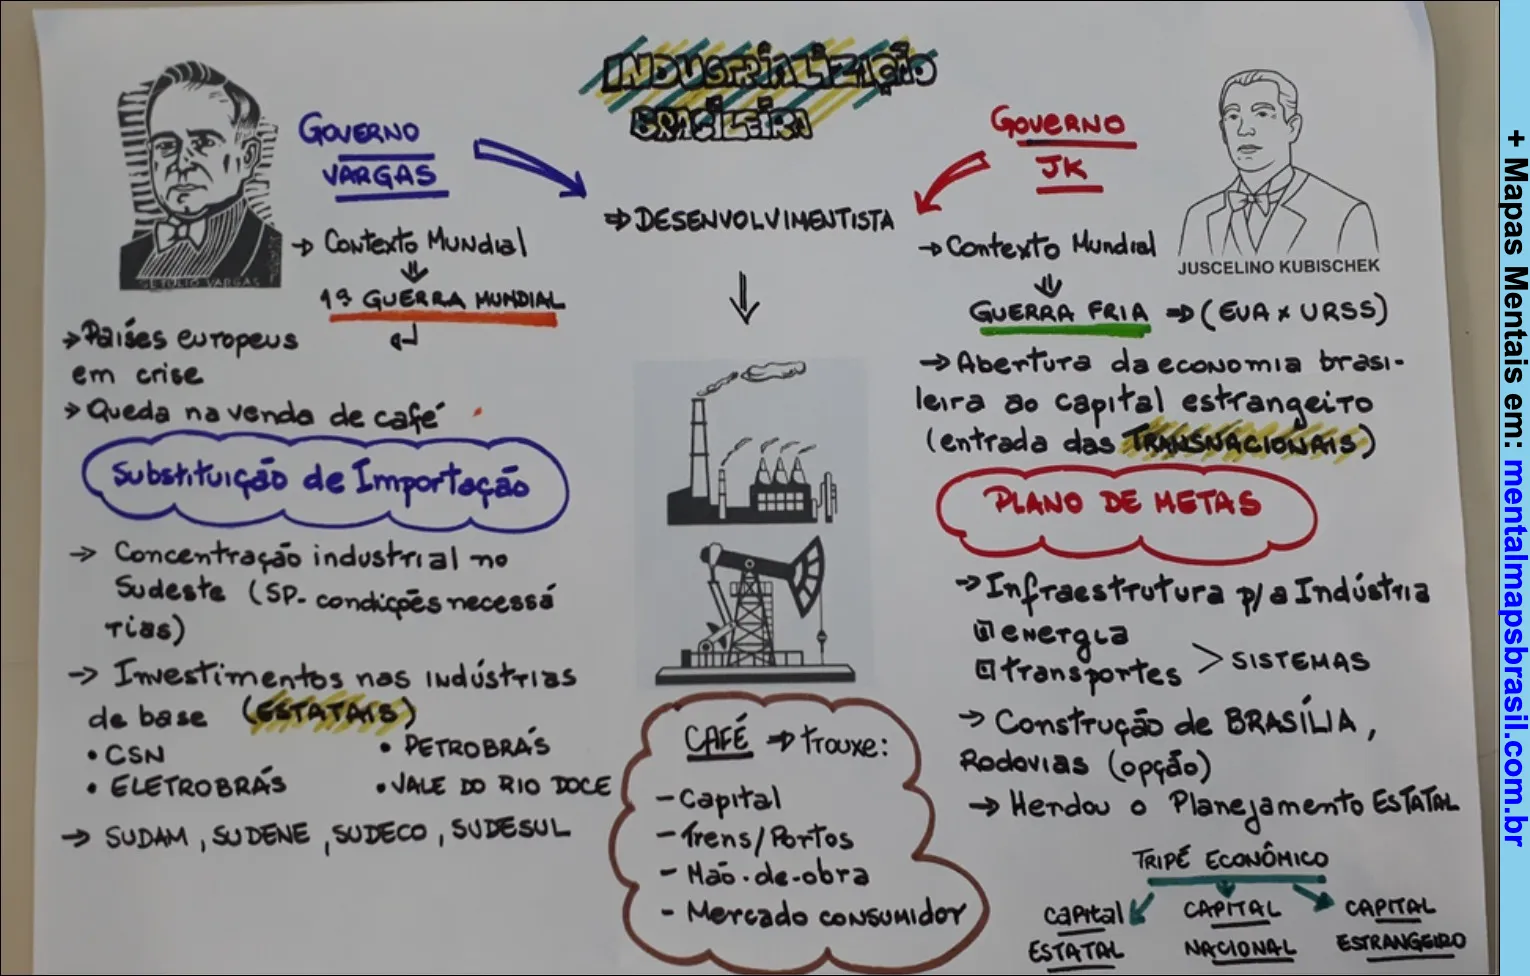 INDUSTRIALIZAÇÃO
BRASILEIRA
GOVERNO
VARGAS
GETÚLIO VARGAS
→ Contexto Mundial
1ª GUERRA MUNDIAL
→ Países europeus
em crise
→ Queda na venda de café
Substituição de Importação
→ Concentração industrial no
Sudeste (SP- condições necessá
rias)
→ Investimentos nas indústrias
de base (ESTATAIS)
• CSN • PETROBRÁS
• ELETROBRÁS • VALE DO RIO DOCE
→ SUDAM, SUDENE, SUDECO, SUDESUL
⇒ DESENVOLVIMENTISTA
CAFÉ ⇒ trouxe:
- Capital
- Trens/Portos
- Mão-de-obra
- Mercado consumidor
GOVERNO
JK
JUSCELINO KUBISCHEK
→ Contexto Mundial
GUERRA FRIA ⇒ (EUA x URSS)
→ Abertura da economia brasi-
leira ao capital estrangeiro
(entrada das TRANSNACIONAIS)
PLANO DE METAS
→ Infraestrutura p/ a Indústria
energia
transportes > SISTEMAS
→ Construção de BRASÍLIA,
Rodovias (opção)
→ Herdou o Planejamento ESTATAL
TRIPÉ ECONÔMICO
CAPITAL
ESTATAL
CAPITAL
NACIONAL
CAPITAL
ESTRANGEIRO
+ Mapas Mentais em: mentalmapsbrasil.com.br